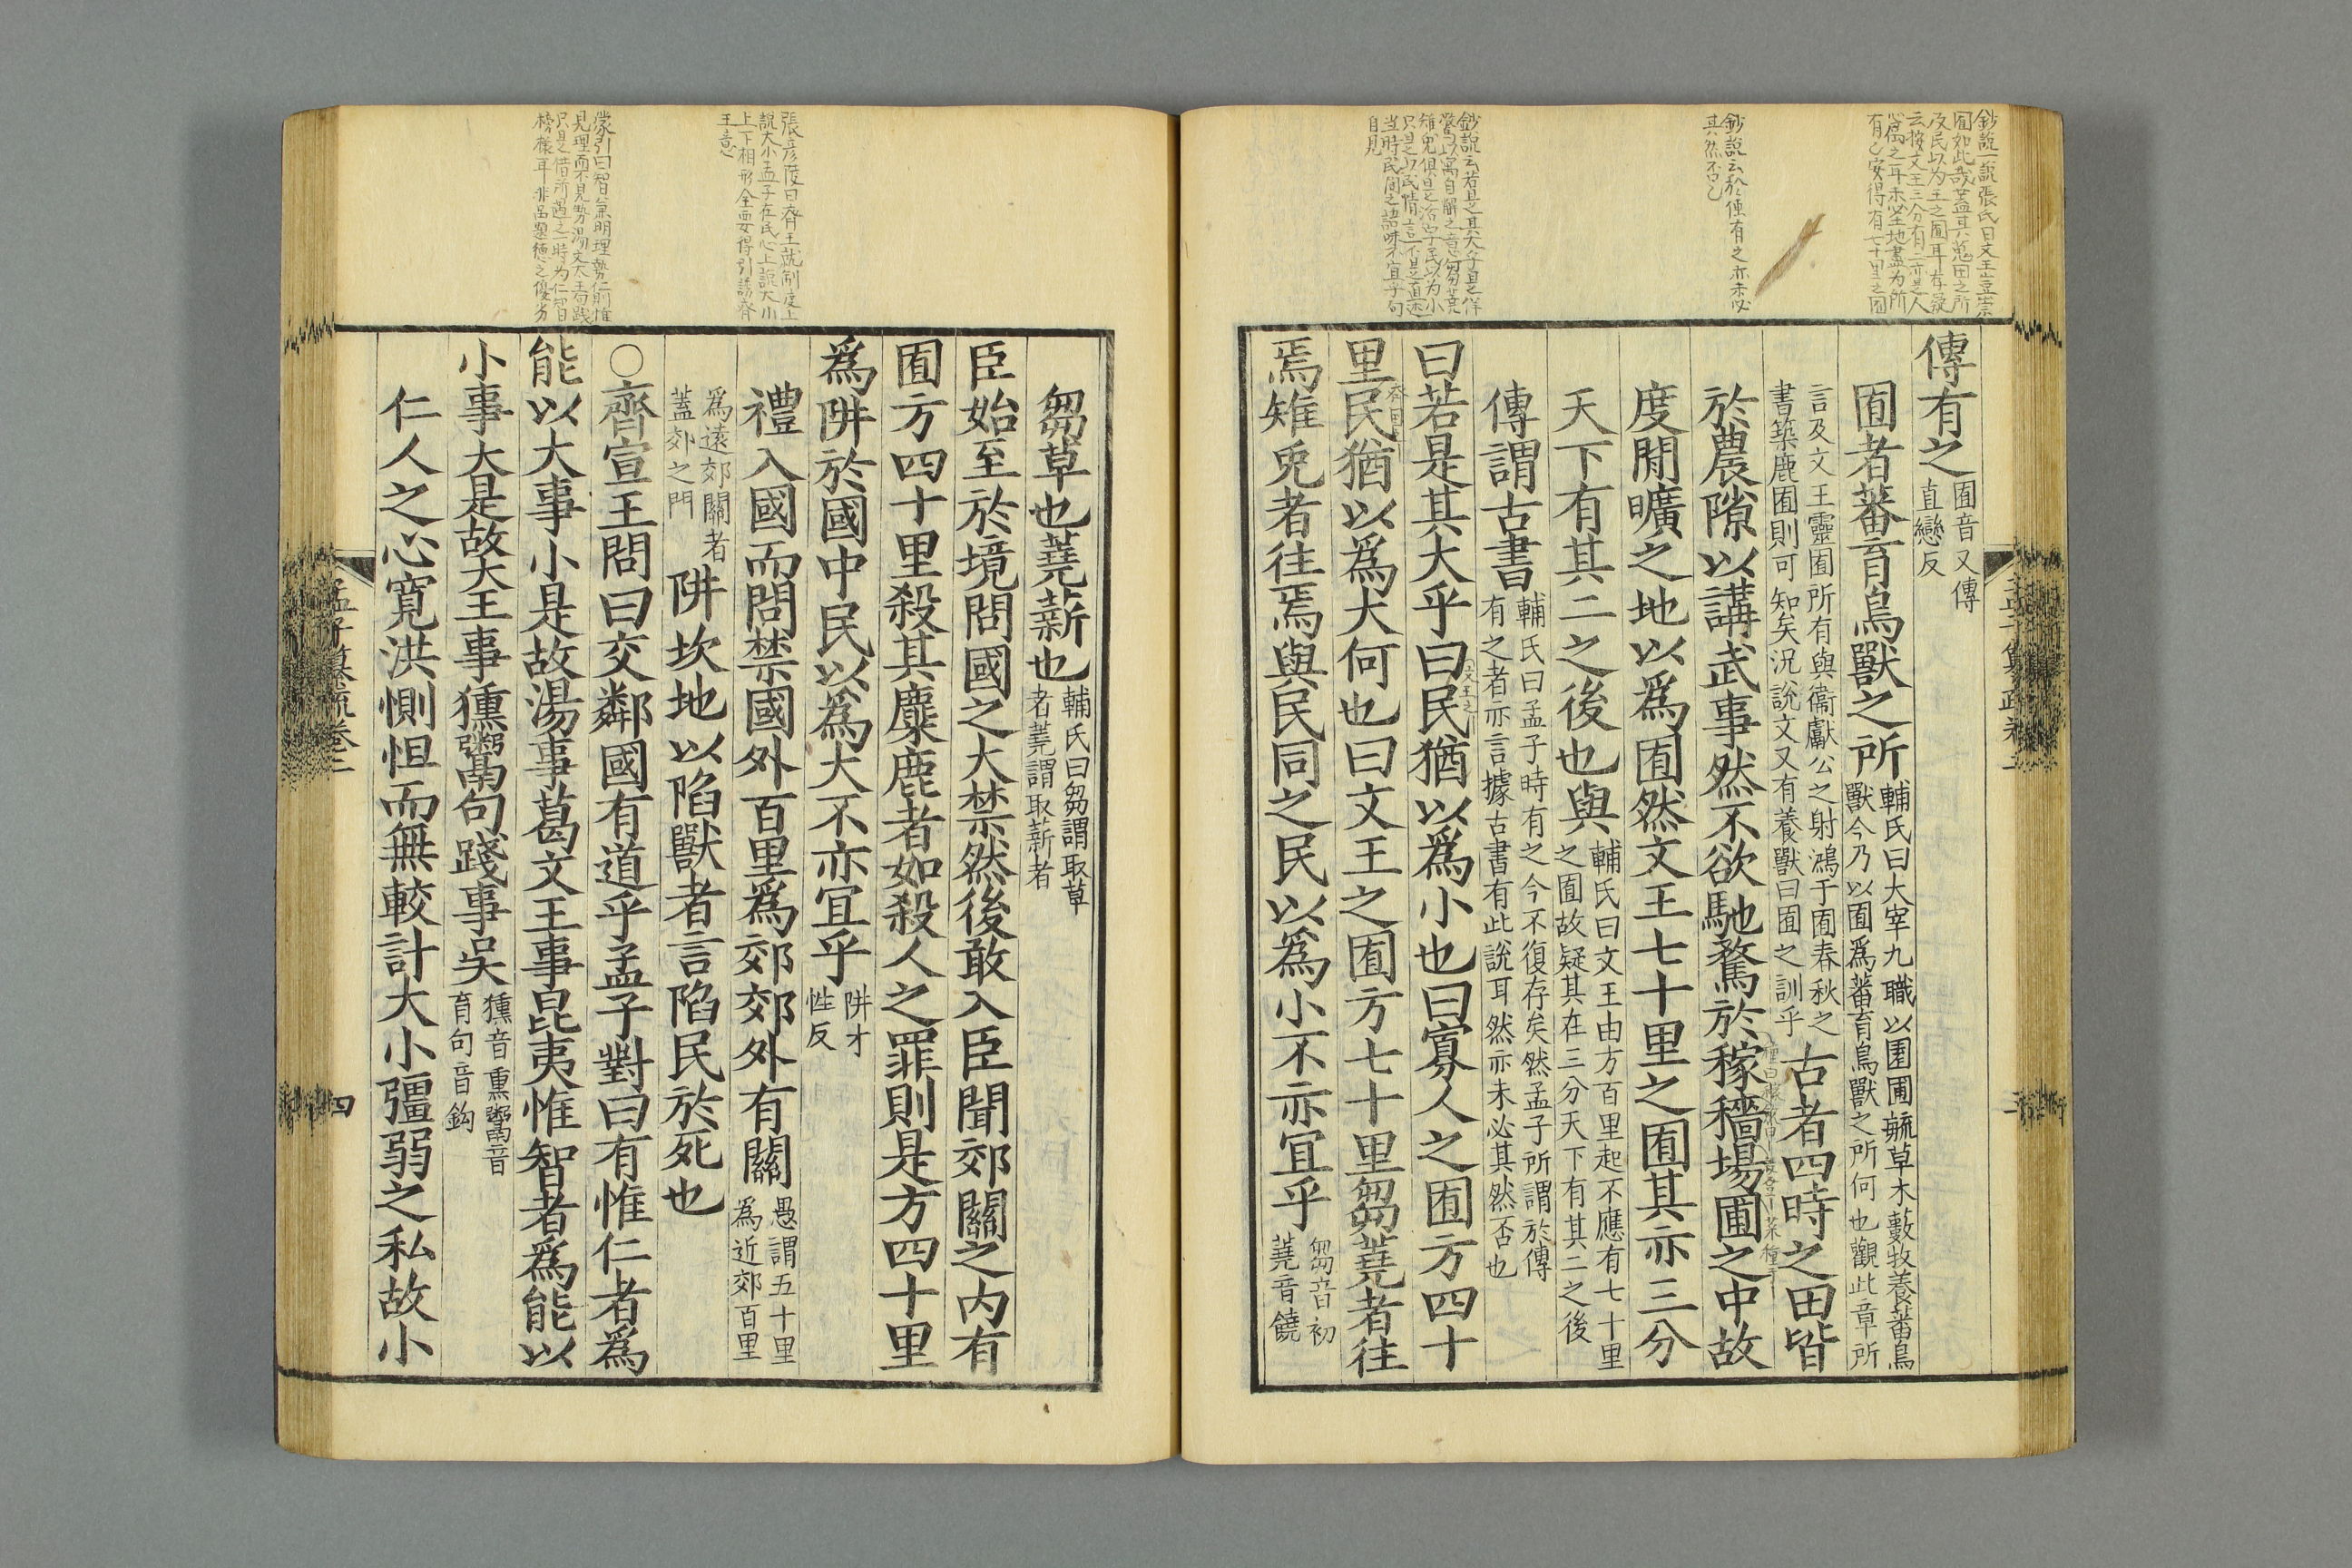 傳有之囿音又傳直戀反
囿者蕃育鳥獸之所輔氏曰大宰九職以園圃毓草木藪牧養蕃鳥獸今乃以囿爲蕃育鳥獸之所何也觀此章所
言及文王靈囿所有與衞獻公之射鴻于囿春秋之書築鹿囿則可知矣況說文又有養獸曰囿之訓乎古者四時之田皆
於農隙以講武事然不欲馳騖於稼穡場圃之中故
度閒曠之地以爲囿然文王七十里之囿其亦三分
天下有其二之後也與輔氏曰文王由方百里起不應有七十里之囿故疑其在三分天下有其二之後
傳謂古書輔氏曰孟子時有之今不復存矣然孟子所謂於傳有之者亦言據古書有此說耳然亦未必其然否也
曰若是其大乎曰民猶以爲小也曰寡人之囿方四十
里民猶以爲大何也曰文王之囿方七十里芻蕘者往
焉雉兎者往焉與民同之民以爲小不亦宜乎芻音初蕘音饒
芻草也蕘薪也輔氏曰芻謂取草者蕘謂取薪者
臣始至於境問國之大禁然後敢入臣聞郊關之内有
囿方四十里殺其麋鹿者如殺人之罪則是方四十里
爲阱於國中民以爲大不亦宜乎阱才性反
禮入國而問禁國外百里爲郊郊外有關愚謂五十里爲近郊百里
爲遠郊關者蓋郊之門阱坎地以陷獸者言陷民於死也
○齊宣王問曰交鄰國有道乎孟子對曰有惟仁者爲
能以大事小是故湯事葛文王事昆夷惟智者爲能以
小事大是故大王事獯鬻句踐事吳獯音熏鬻音育句音鉤
仁人之心寛洪惻怛而無較計大小彊弱之私故小
孟子纂疏卷二
四
鈔說云於傳有之亦未必其然否也
張彦陵曰齊王就制度上說大小孟子在民心上說大小上下相形全要得引誘齊王意